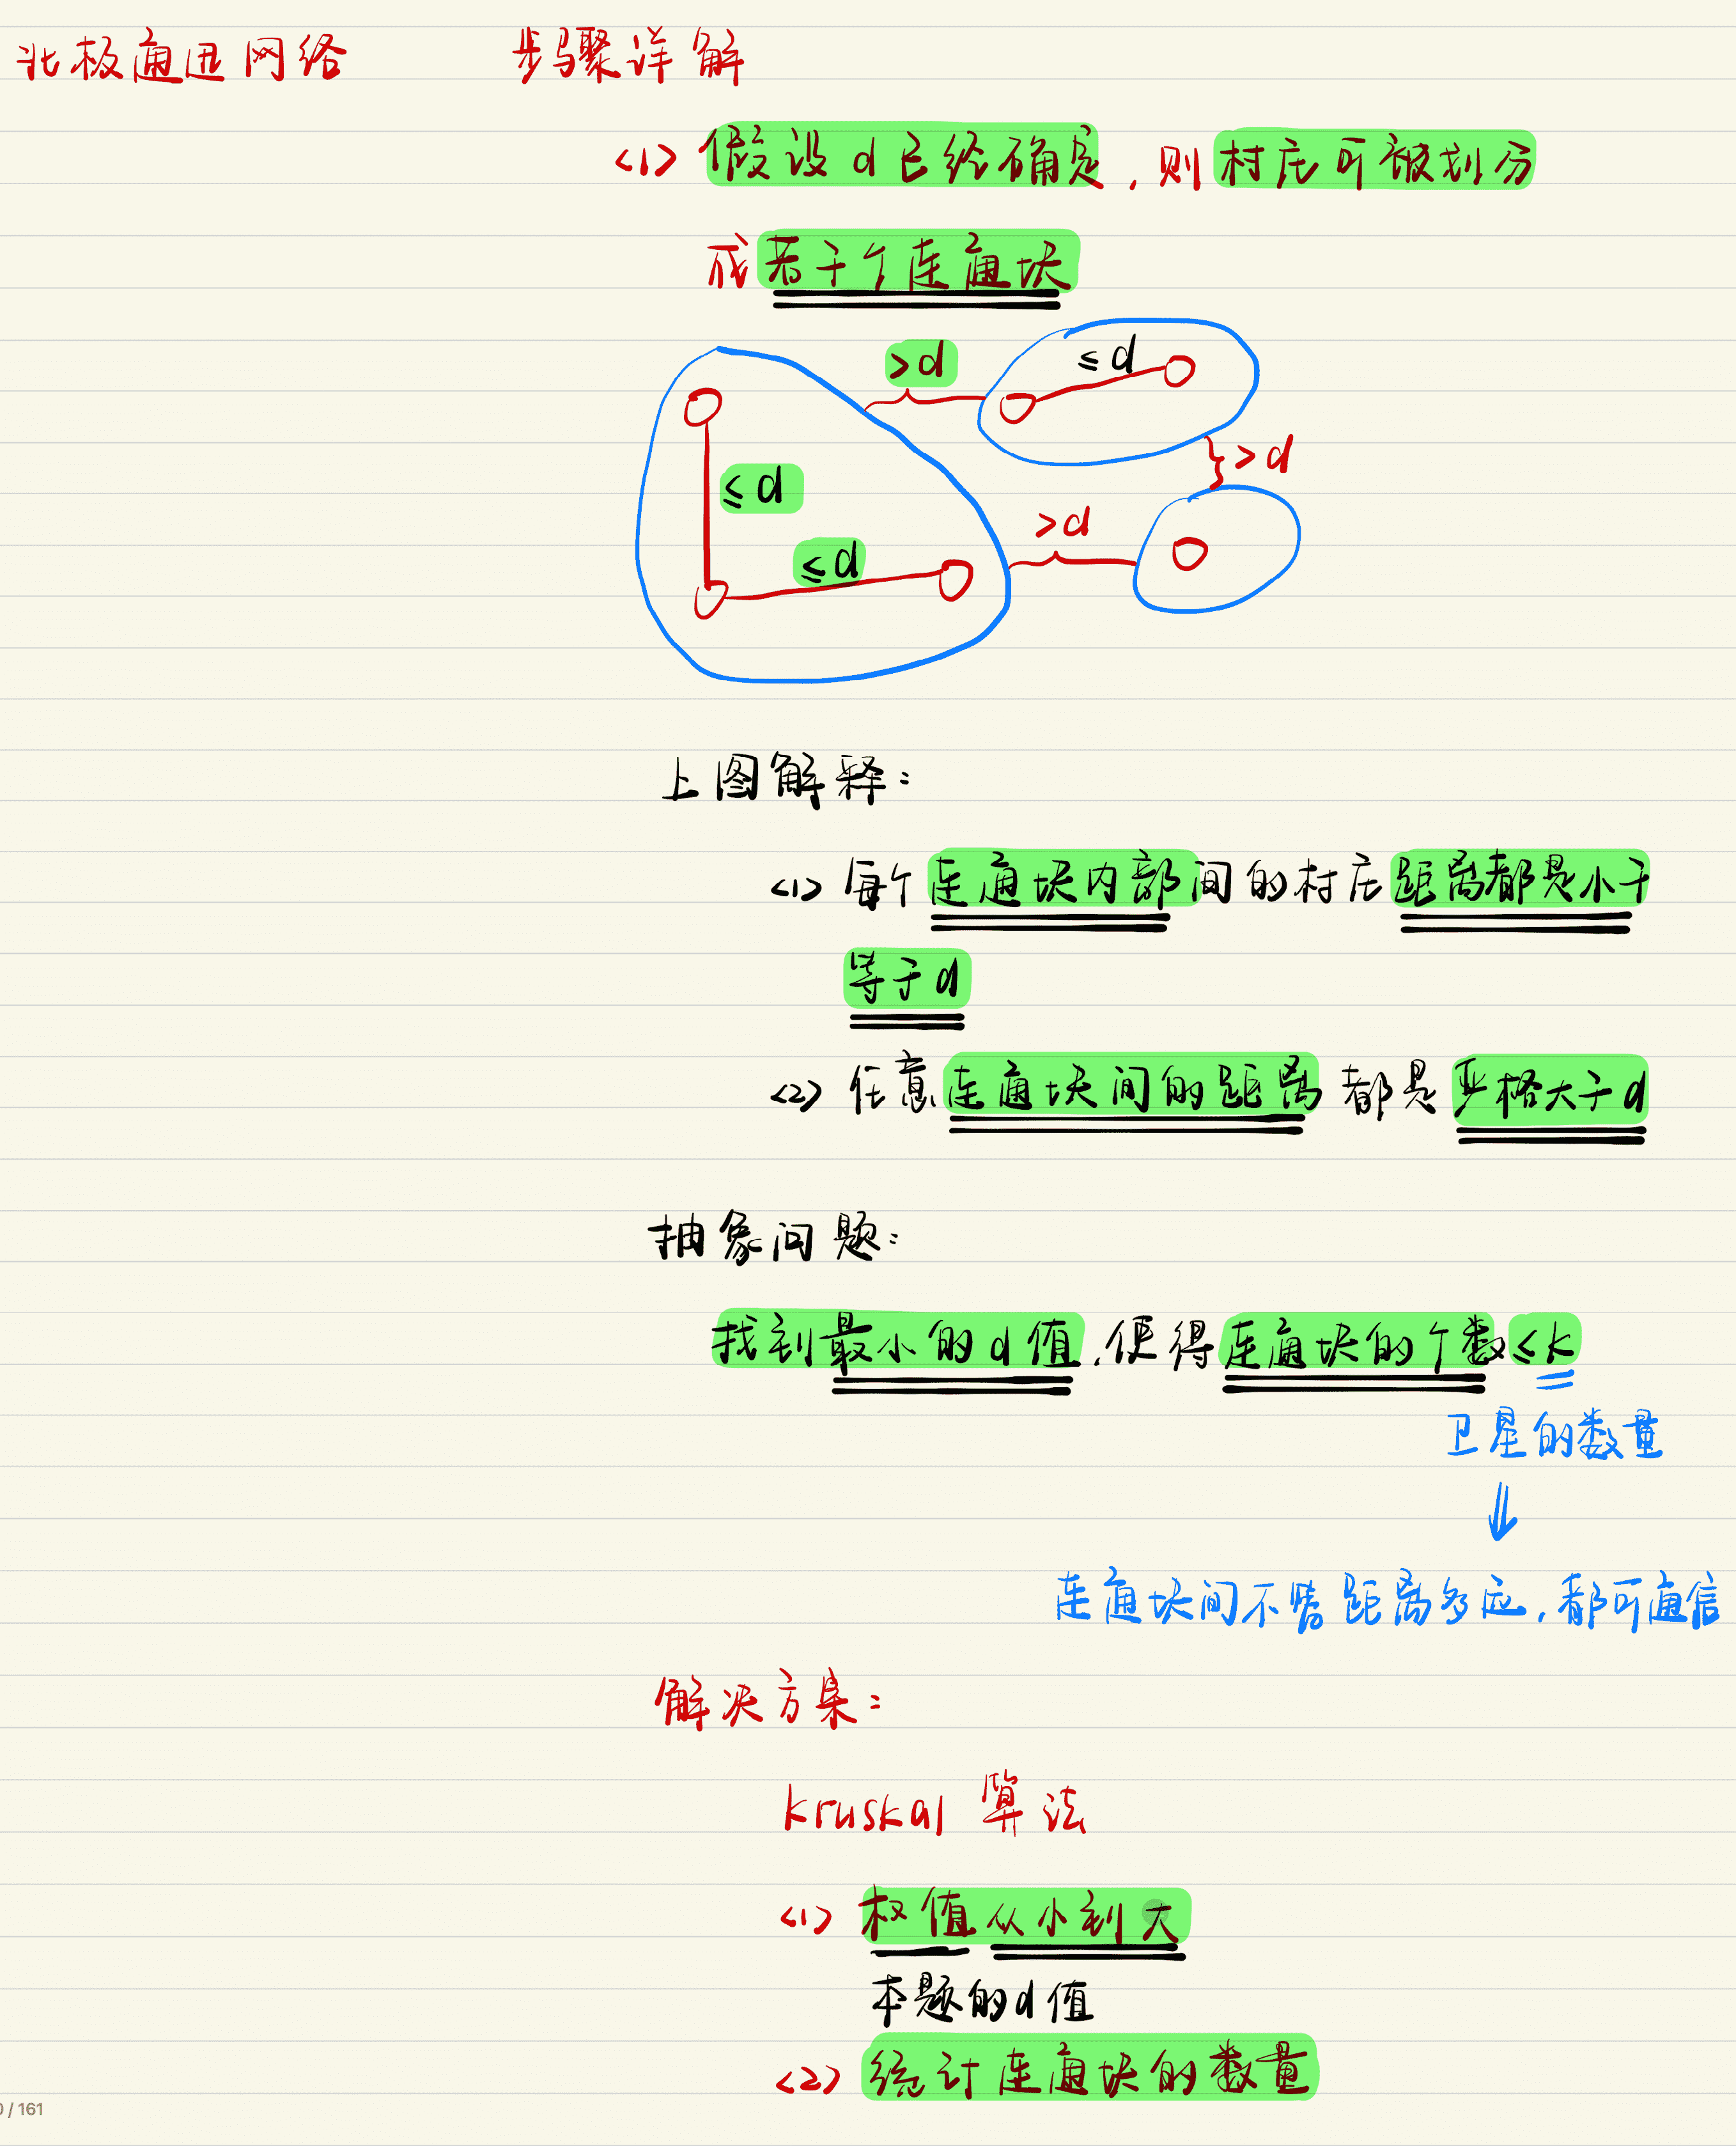 北极通迅网络 步骤详解
<1> 假设d已经确定,则村庄可被划分
成若干个连通块
>d
≤d
≤d
>d
>d
≤d
上图解释:
<1> 每个连通块内部间的村庄距离都是小于
等于d
<2> 任意连通块间的距离都是严格大于d
抽象问题:
找到最小的d值,使得连通块的个数≤k
卫星的数量
↓
连通块间不管距离多远,都可通信
解决方案:
kruskal 算法
<1> 权值从小到大
本题的d值
<2> 统计连通块的数量
0/161